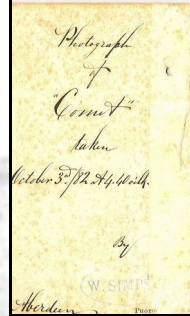 Photograph
of
"Comet"
taken
October 3rd/82 at 4.40 o'clk.
By
W. SIMPS
Aberdeen Photo